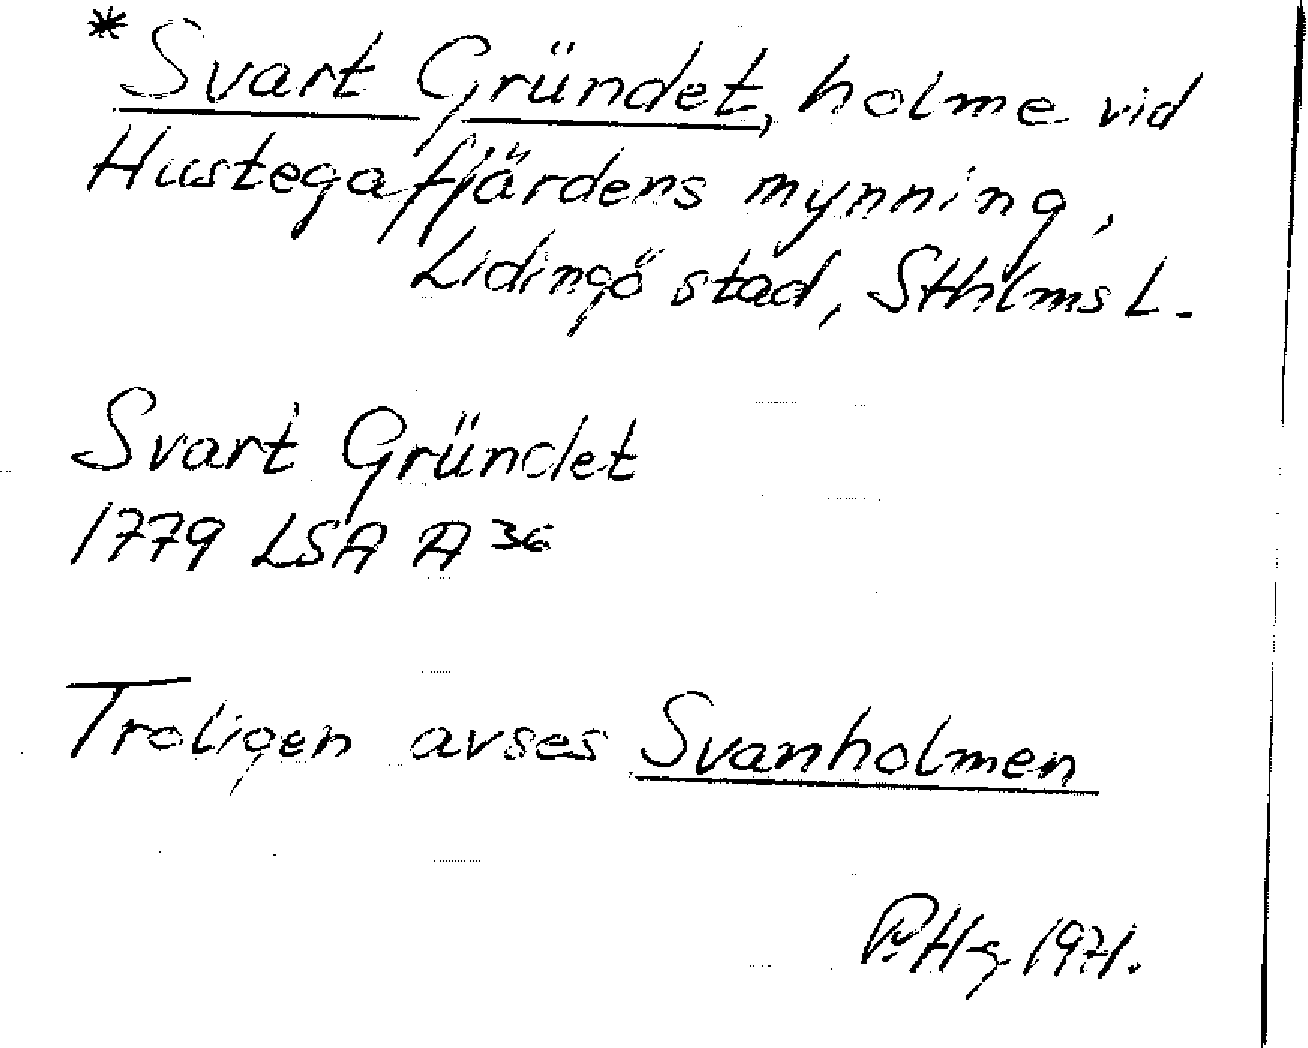 *Svart Gründet, holme vid
Hustegafjärdens mynning,
Lidingö stad, Sthlms L.
Svart Gründet
1779 LSA A 36
Troligen avses Svanholmen
P.Hg. 1971.